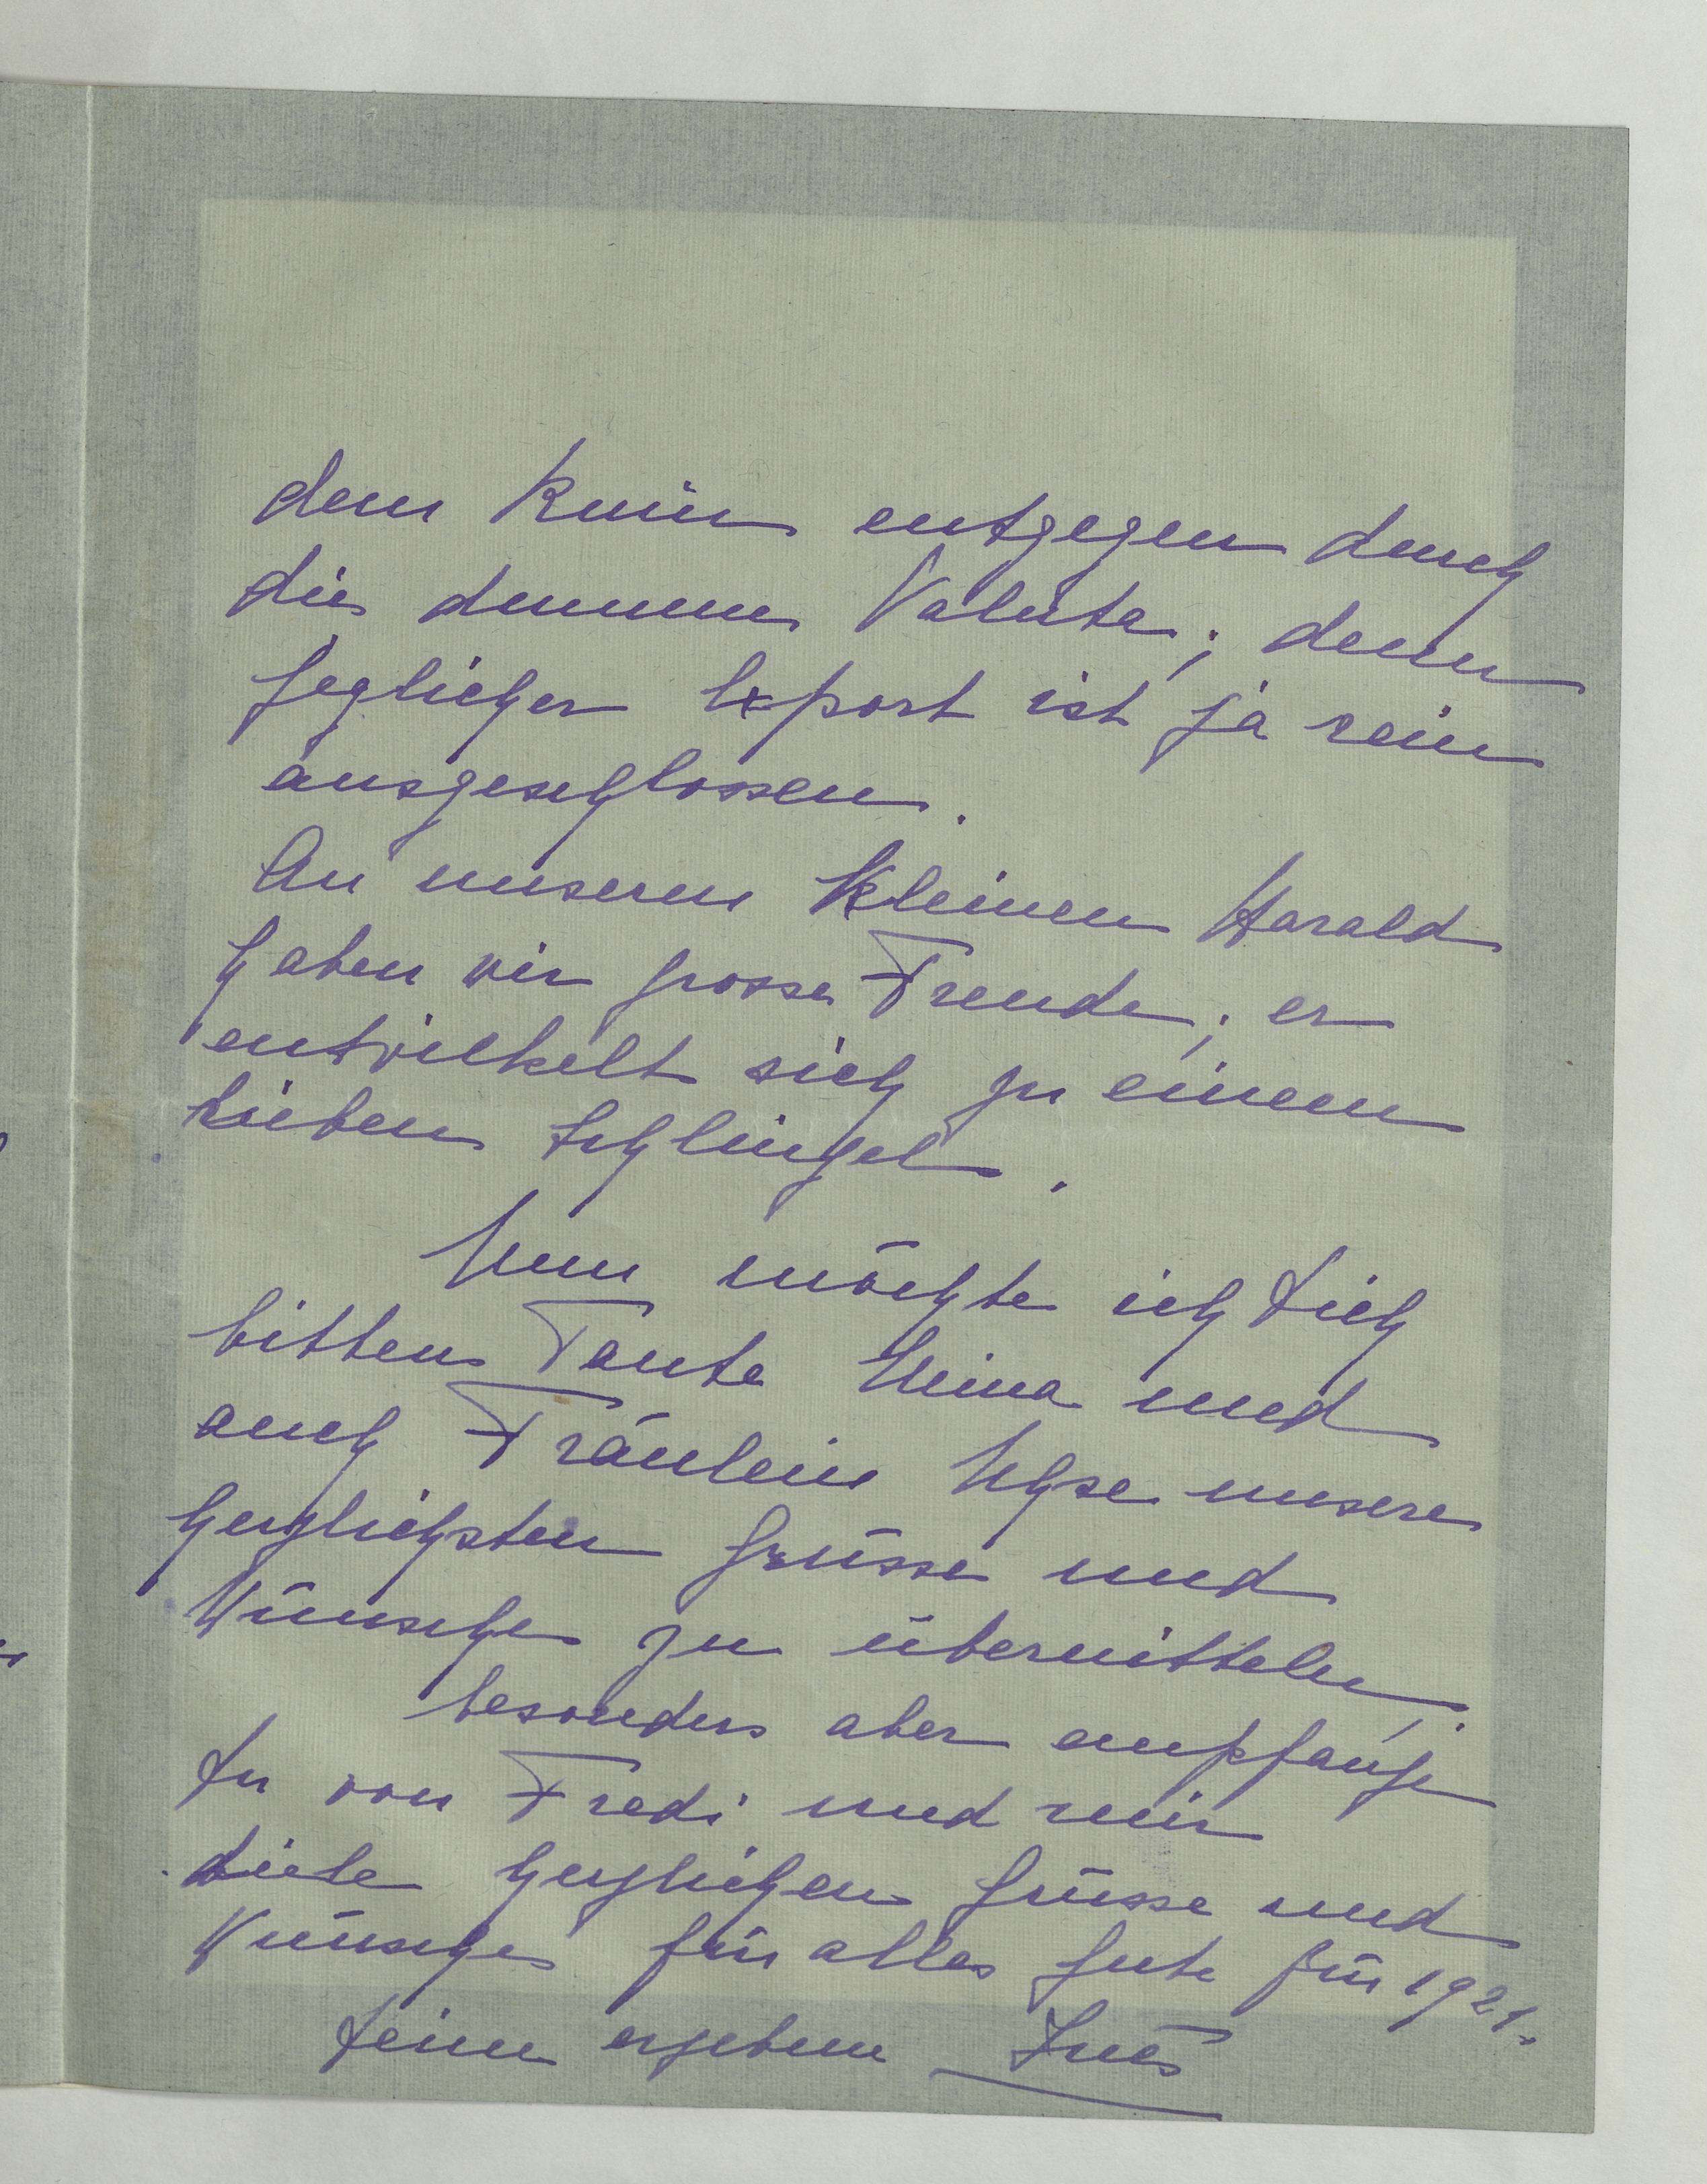 dem Ruin entgegen durch
die dumme Valuta; denn
jeglicher Export ist ja rein
ausgeschlossen.
An unserem kleinen Harald
haben wir grosse Freude; er
entwickelt sich zu einem
lieben Schlingel.
Nun möchte ich Dich
bitten Tante Nina und
auch Fräulein unsere
herzlichsten Grüsse und
Wünsche zu übermitteln;
besonders aber empfange
Du von Fredi und mir
viele herzlichen Grüsse und
Wünsche für alles Gute für 1921.
Deine ergebene Inès